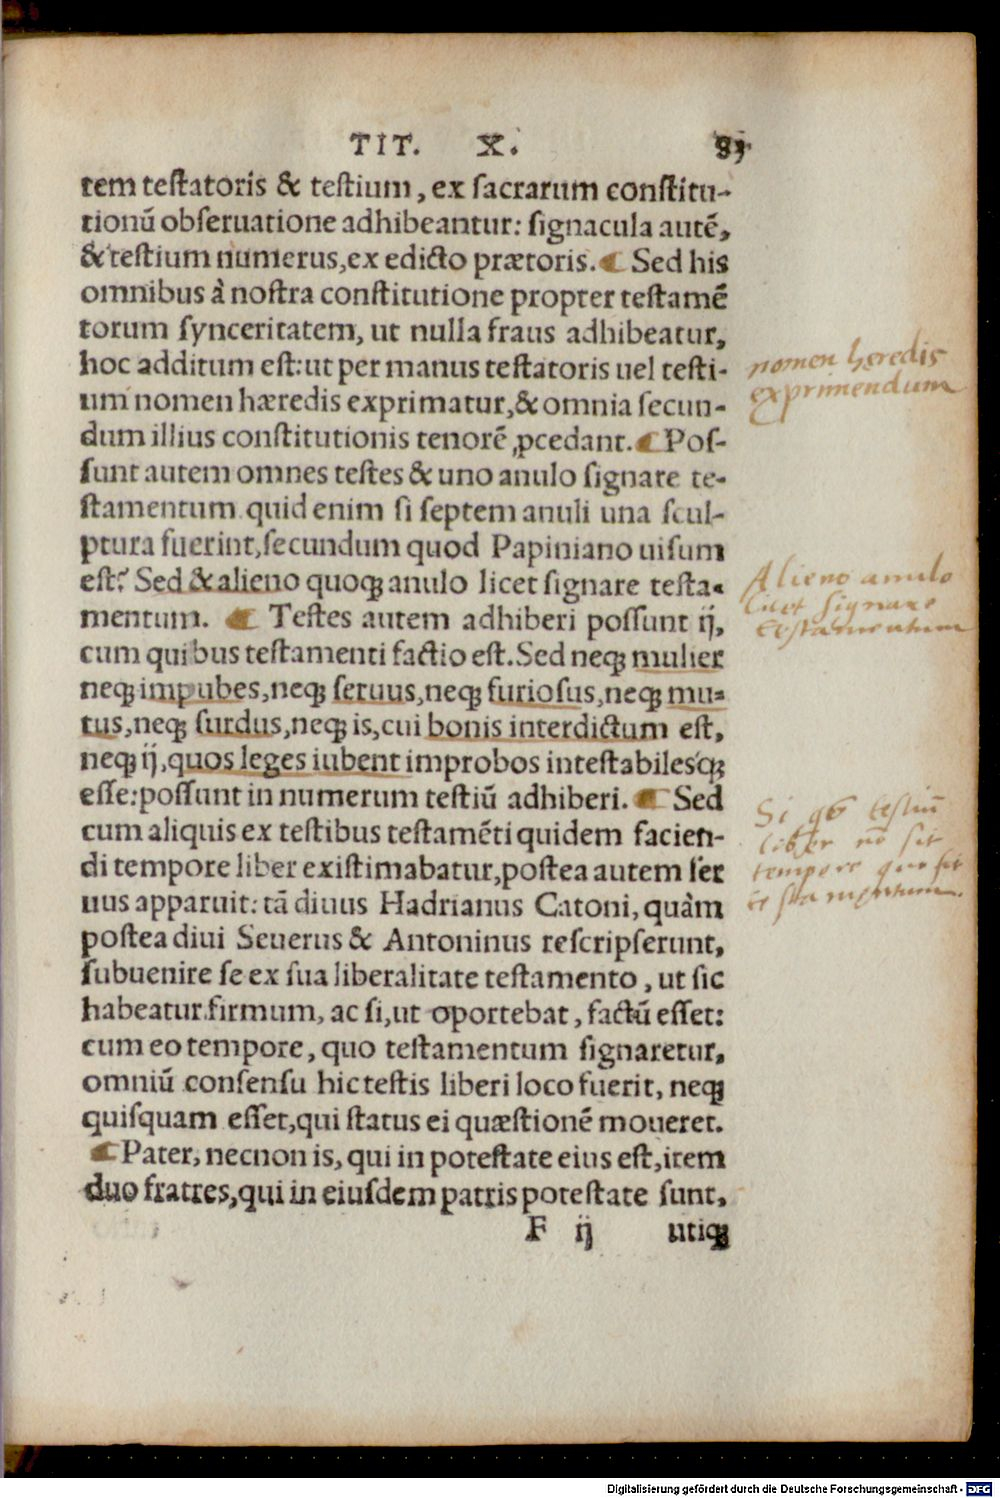 TIT. X. 83
tem testatoris & testium, ex sacrarum constitu-
tionũ obseruatione adhibeantur: signacula autẽ,
& testium numerus, ex edicto prætoris. Sed his
omnibus à nostra constitutione propter testamẽ
torum synceritatem, ut nulla fraus adhibeatur,
hoc additum est: ut per manus testatoris uel testi-
um nomen hæredis exprimatur, & omnia secun-
dum illius constitutionis tenorẽ ꝓcedant. Pos-
sunt autem omnes testes & uno anulo signare te-
stamentum. quid enim si septem anuli una scul-
ptura fuerint, secundum quod Papiniano uisum
est? Sed & alieno quoqꝫ anulo licet signare testa-
mentum. Testes autem adhiberi possunt ij,
cum quibus testamenti factio est. Sed neqꝫ mulier
neqꝫ impubes, neqꝫ seruus, neqꝫ furiosus, neqꝫ mu-
tus, neqꝫ surdus, neqꝫ is, cui bonis interdictum est,
neqꝫ ij, quos leges iubent improbos intestabilesqꝫ
esse: possunt in numerum testiũ adhiberi. Sed
cum aliquis ex testibus testamẽti quidem facien-
di tempore liber existimabatur, postea autem ser
uus apparuit: tã diuus Hadrianus Catoni, quàm
postea diui Seuerus & Antoninus rescripserunt,
subuenire se ex sua liberalitate testamento, ut sic
habeatur firmum, ac si, ut oportebat, factũ esset:
cum eo tempore, quo testamentum signaretur,
omniũ consensu hic testis liberi loco fuerit, neqꝫ
quisquam esset, qui status ei quæstionẽ moueret.
Pater, necnon is, qui in potestate eius est, item
duo fratres, qui in eiusdem patris potestate sunt,
F ij utiqꝫ
nomen heredis
exprimendum
Alieno annulo
licet signare
testamentum
Si qs testiũ
liber nõ sit
tempore quo fit
testamentum.
Digitalisierung gefördert durch die Deutsche Forschungsgemeinschaft - DFG